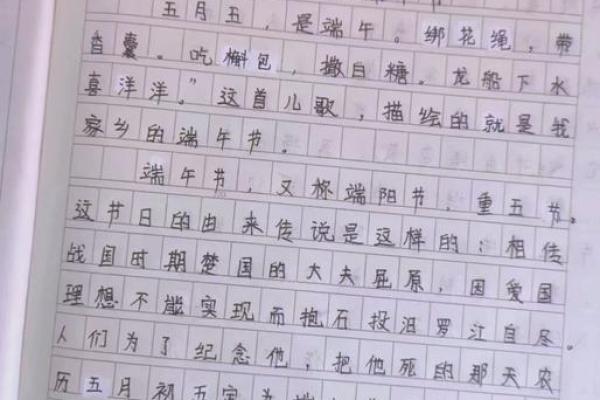 五月五，是端午。绑花绳，带
香囊。吃槲包，撒白糖。龙船下水
喜洋洋。”这首儿歌，描绘的就是我
家乡的端午节。
端午节，又称端阳节，重五节。
这节日的由来传说是这样的：相传
战国时期楚国的大夫屈原，因爱国
理想不能实现而抱石投汨罗江自尽。
人们为了纪念他，把他死的那天农
历五月初五定为端